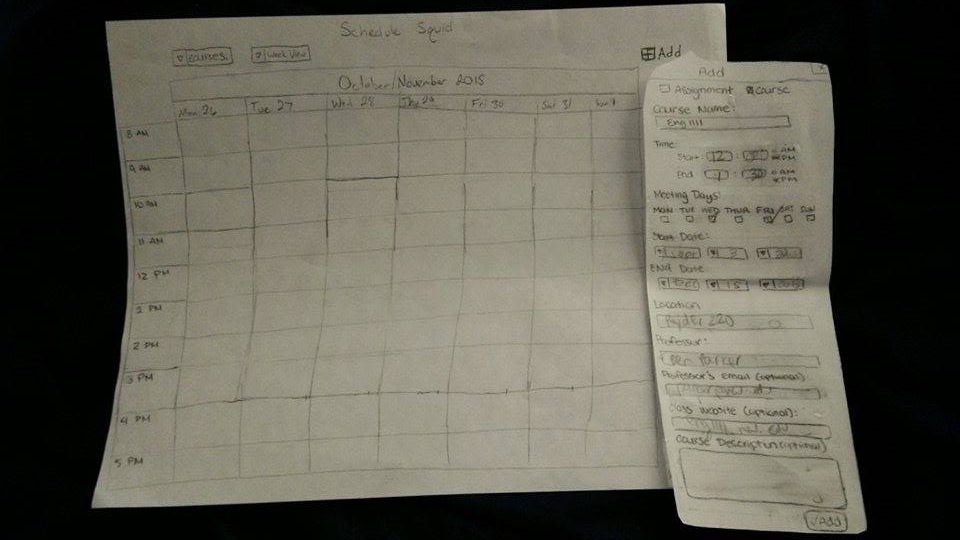 Schedule Squid
Courses
Week View
Add
October/November 2015
Mon 26 Tue 27 Wed 28 Thu 29 Fri 30 Sat 31 Sun 1
8 AM
9 AM
10 AM
11 AM
12 PM
1 PM
2 PM
3 PM
4 PM
5 PM
Add
Assignment Course
Course Name:
Eng 1111
Time:
Start 12 : AM
PM
End 1 : 30 AM
PM
Meeting Days:
MON TUE WED THUR FRI SAT SUN
Start Date:
Sept 3
END Date
15
Location
Ryder 220
Professor:
Ben Parker
Professor's email (optional)
Class website (optional):
Course Description (optional)
Add